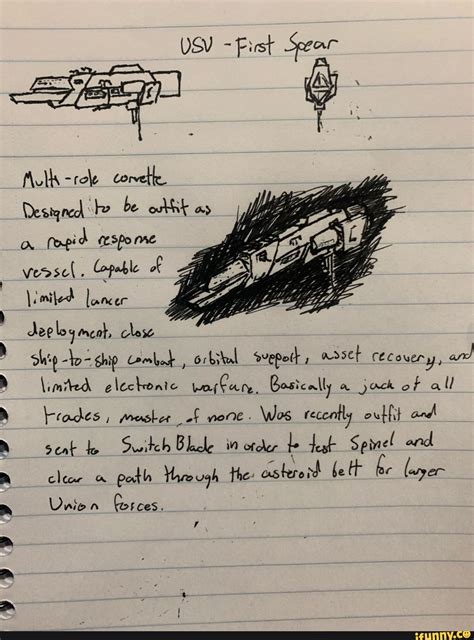 USV - First Spear
Multi-role corvette
Designed to be outfit as
a rapid response
vessel. Capable of
limited lancer
deployment, close
ship-to-ship combat, orbital support, asset recovery, and
limited electronic warfare. Basically a jack of all
trades, master of none. Was recently outfit and
sent to Switch Blade in order to test Spinel and
clear a path through the asteroid belt for larger
Union forces.
ifunny.co